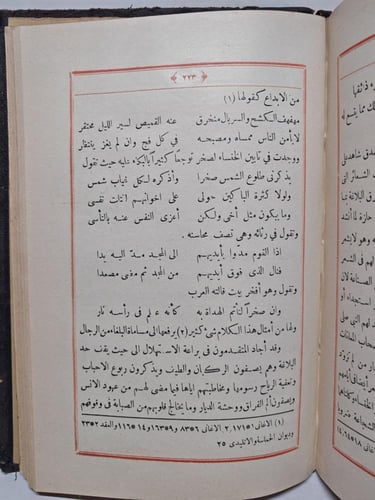 ﴿ ٢٢٣ ﴾
من الابداع كقولها (١)
مهفهف الكشح والسربال منخرق عنه القميص لسير الليل محتقر
لا يأمن الناس ممساه ومصبحه في كل فج وان لم يغز ينتظر
ووجدت في تأبين الخنساء لصخر توجعًا كثيرًا بالبكاء عليه حيث تقول
يذكرني طلوع الشمس صخرا وأذكره لكل غياب شمس
ولولا كثرة الباكين حولي على اخوانهم لقتلت نفسي
وما يبكون مثل أخي ولكن أعزي النفس عنه بالتأسي
وتقول في رثائه وهي تصف محاسنه .
اذا القوم مدوا بأيديهم الى المجد مد اليه يدا
فنال الذي فوق أيديهم من المجد ثم مضى مصعدا
وتقول وهو أفخر بيت قالته العرب
وان صخرًا لتأتم الهداة به كأنه علم في رأسه نار
ولها من أمثال هذا الكلام شيء كثير (٢) يرفعها الى مساماة البلغاء من الرجال
وقد أجاد المتقدمون في براعة الاستهلال الى حيث يقف حد
البلاغة وهم يصفون الركبان والطيف ويذكرون ربوع الاحباب
وتعفية الرياح رسومها ومخاطبتهم اياها فيما مضى لهم من عهود الانس
ويصفون ألم الفراق ووحشة الديار وما يخالج قلوبهم من الصبابة في وقوفهم
(١) الاغاني
وديوان الحماسة والاتليدي ٢٥